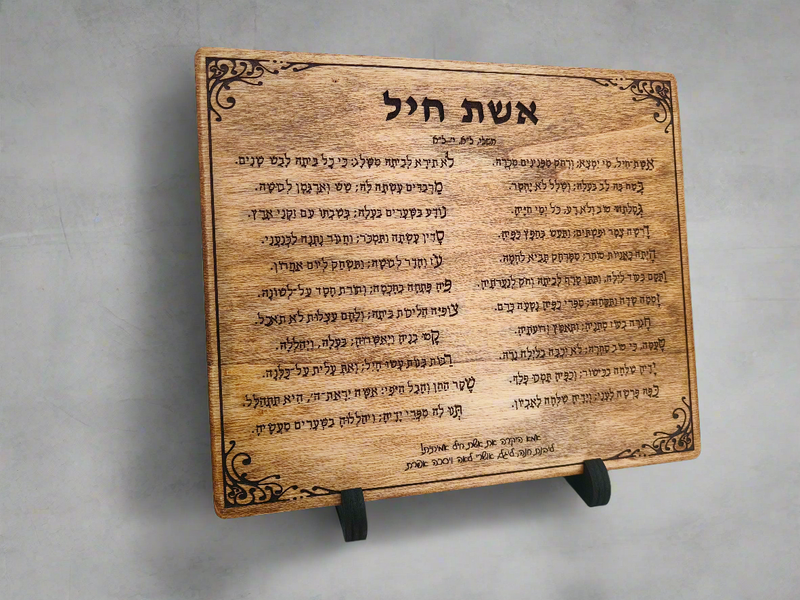 אשת חיל
משלי, ל"א, י'-ל"א
אשת-חיל, מי ימצא; ורחק מפנינים מכרה.
בטח בה לב בעלה; ושלל לא יחסר.
גמלתהו טוב ולא רע, כל ימי חייה.
דרשה צמר ופשתים; ותעש בחפץ כפיה.
היתה כאניות סוחר; ממרחק תביא לחמה.
ותקם בעוד לילה, ותתן טרף לביתה וחק לנערתיה.
זממה שדה ותקחהו; מפרי כפיה נטעה כרם.
חגרה בעוז מתניה; ותאמץ זרועתיה.
טעמה, כי טוב סחרה; לא יכבה בלילה נרה.
ידיה שלחה בכישור; וכפיה תמכו פלך.
כפה פרשה לעני; וידיה שלחה לאביון.
לא תירא לביתה משלג: כי כל ביתה לבש שנים.
מרבדים עשתה לה; שש וארגמן לבושה.
נודע בשערים בעלה; בשבתו עם זקני ארץ.
סדין עשתה ותמכר; וחגור נתנה לכנעני.
עז והדר לבושה; ותשחק ליום אחרון.
פיה פתחה בחכמה; ותורת חסד על-לשונה.
צופיה הליכות ביתה; ולחם עצלות לא תאכל.
קמו בניה ויאשרוה; בעלה, ויהללה.
רבות בנות עשו חיל; ואת עלית על-כלנה.
שקר החן והבל היפי: אשה יראת-ה', היא תתהלל.
תנו לה מפרי ידיה; ויהללוה בשערים מעשיה.
אמא היקרה את אשת חיל אמיתית!
חנה אושרי לאה ויסכה אפרת